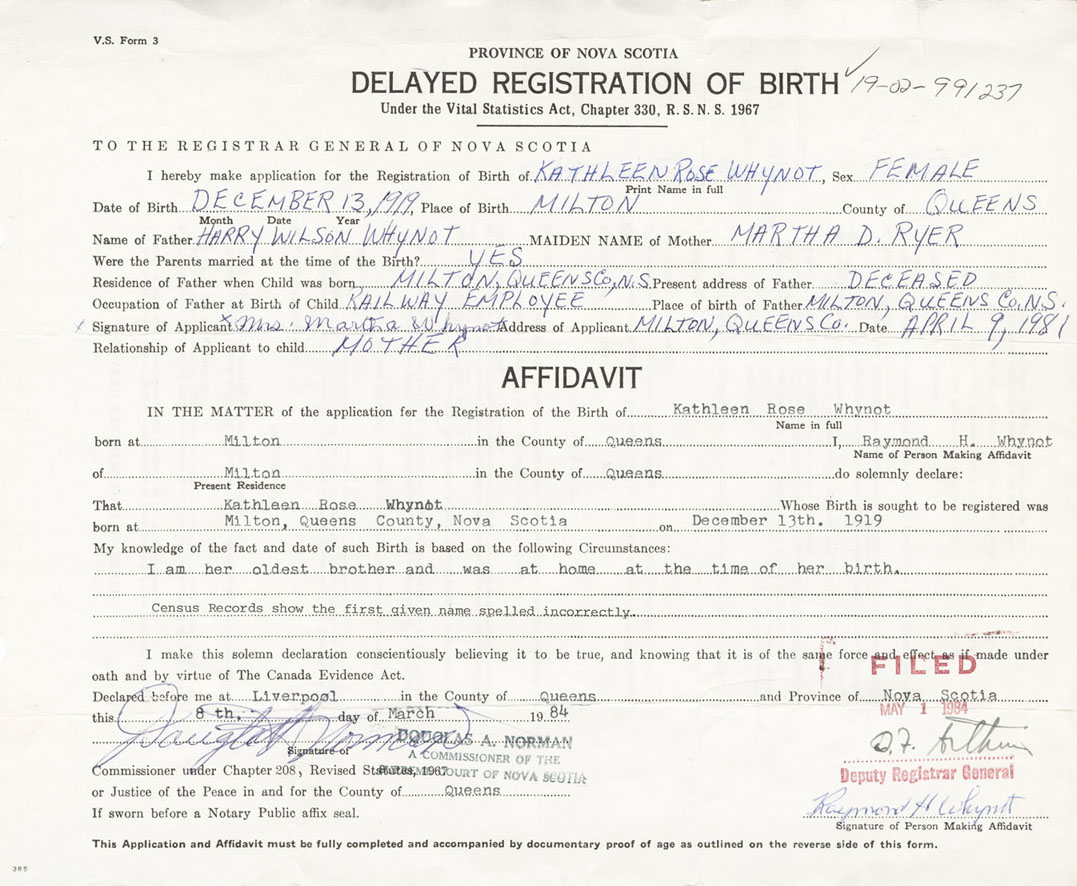 V.S. Form 3
PROVINCE OF NOVA SCOTIA
DELAYED REGISTRATION OF BIRTH ✓ 19-02-991237
Under the Vital Statistics Act, Chapter 330, R.S.N.S. 1967
TO THE REGISTRAR GENERAL OF NOVA SCOTIA
I hereby make application for the Registration of Birth of KATHLEEN ROSE WHYNOT, Sex FEMALE
Print Name in full
Date of Birth DECEMBER 13, 1919, Place of Birth MILTON County of QUEENS
Month Date Year
Name of Father HARRY WILSON WHYNOT MAIDEN NAME of Mother MARTHA D. RYER
Were the Parents married at the time of the Birth? YES
Residence of Father when Child was born MILTON, QUEENS Co, N.S. Present address of Father DECEASED
Occupation of Father at Birth of Child RAILWAY EMPLOYEE Place of birth of Father MILTON, QUEENS Co. N.S.
x Signature of Applicant x Mrs. Martha Whynot Address of Applicant MILTON, QUEENS Co. Date APRIL 9, 1981
Relationship of Applicant to child MOTHER
AFFIDAVIT
IN THE MATTER of the application for the Registration of the Birth of Kathleen Rose Whynot
Name in full
born at Milton in the County of Queens I, Raymond H. Whynot
Name of Person Making Affidavit
of Milton in the County of Queens do solemnly declare:
Present Residence
That Kathleen Rose Whynot Whose Birth is sought to be registered was
born at Milton, Queens County, Nova Scotia on December 13th. 1919
My knowledge of the fact and date of such Birth is based on the following Circumstances:
I am her oldest brother and was at home at the time of her birth.
Census Records show the first given name spelled incorrectly.
I make this solemn declaration conscientiously believing it to be true, and knowing that it is of the same force and effect as if made under
oath and by virtue of The Canada Evidence Act.
FILED
Declared before me at Liverpool in the County of Queens and Province of Nova Scotia
MAY 1 1984
this 8 th. day of March 19 84
Douglas A Norman
DOUGLAS A. NORMAN
Signature of
A COMMISSIONER OF THE
Commissioner under Chapter 208, Revised Statutes, 1967
SUPREME COURT OF NOVA SCOTIA
Deputy Registrar General
or Justice of the Peace in and for the County of Queens
Raymond H Whynot
If sworn before a Notary Public affix seal.
Signature of Person Making Affidavit
This Application and Affidavit must be fully completed and accompanied by documentary proof of age as outlined on the reverse side of this form.
385